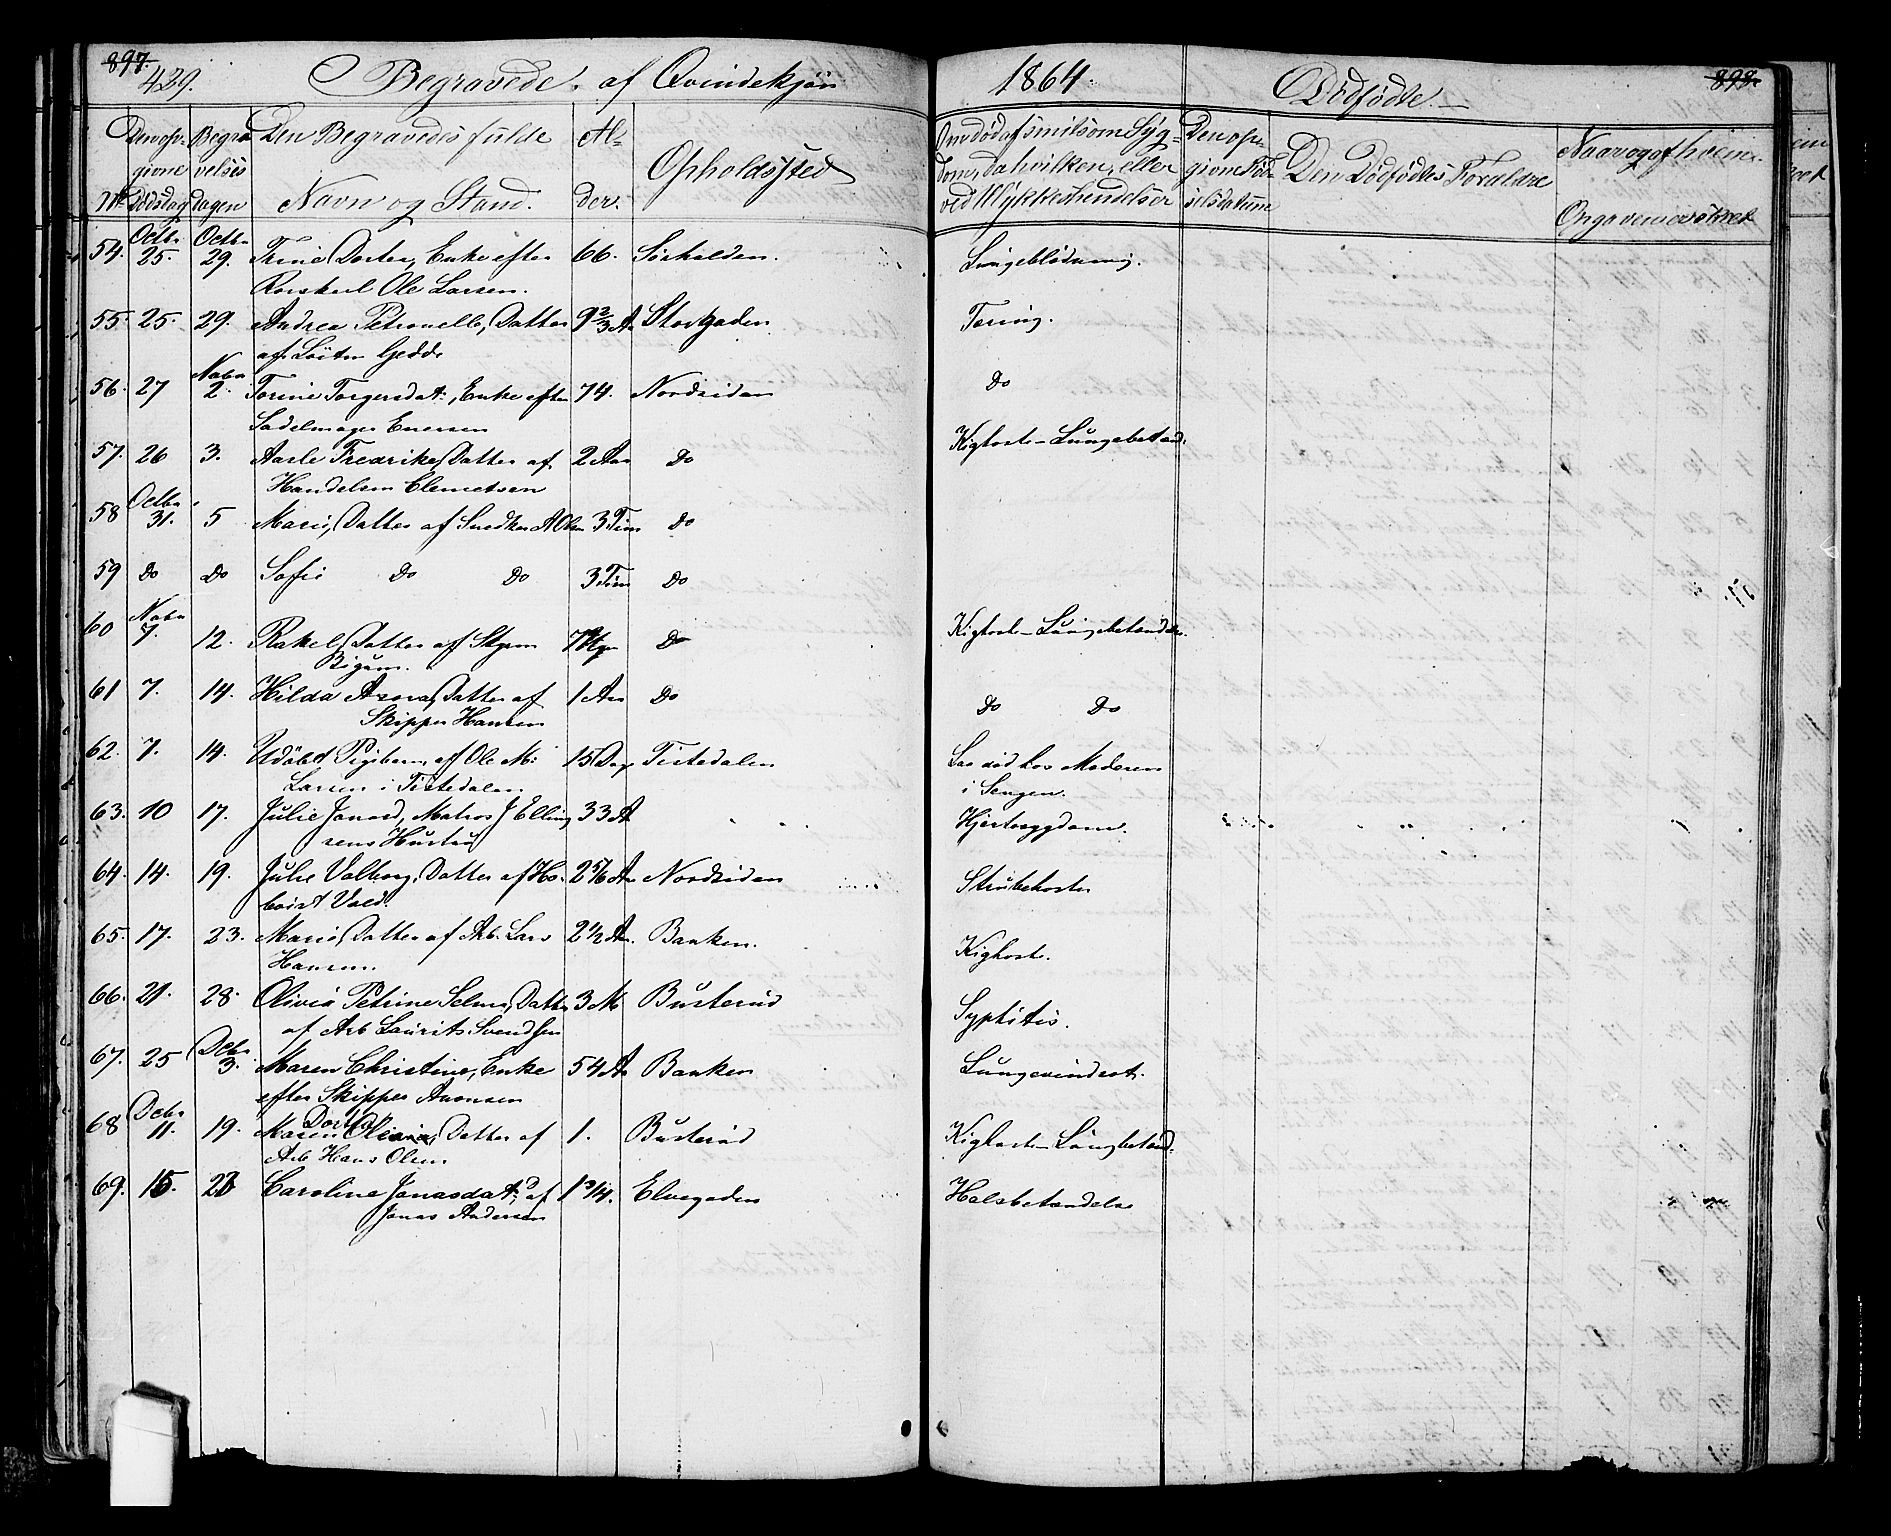 897.
429.
Begravede af Qvindekjøn
1864.
Dødfødte.
898.
No
Den opgivne Dødsdag
Begravelsesdagen
Den Begravedes fulde Navn og Stand.
Alder.
Opholdssted
Om død af smitsom Sygdom, da hvilken, eller ved Ulykkeshændelser
Den opgivne Fødselsdatum
Den Dødfødtes Forældre
Naar og af hvem Opgaven er skeet
54. Octbr 25. Octbr 29. Trine Dorter, Enke efter 66. Sørhalden. Lungeblødning.
Rorskarl Ole Larsen.
55. 25. 29. Andrea Petronelle, Datter 9 2/3 A Storgaden Tæring.
af Løitn Gedde
56. 27 Novbr 2. Torine Torgersdat:, Enke efter 74. Nordsiden Do
Sadelmager Enersen
57. 26 3. Fredrike, Datter af 2 Aar Do Kighoste-Lungebetænd.
Handelsm Clemetsen
58 Octbr 31. 5 Marie, Datter af Snedker A Olsen 3 Tim Do
59 Do Do Sofie Do Do 3 Tim Do
60 Novbr 7. 12. Rakel, Datter af Do Kighoste-Lungebetændelse.
61 7. 14. Hilda Datter af 1 Aar Do Do Do
Skipper Hansen
62. 7. 14. Udøbt Pigebarn, af Ole M: 15 Dag Tistedalen Laa død hos Moderen
Larsen i Tistedalen i Sengen.
63. 10 17. Julie Jonasd, Matros J Elling 33 A Hjertesygdom.
sens Hustru
64. 14. 19. Julie Valborg, Datter af Ho- 2 5/6 A Nordsiden Strubehoste
boist
65. 17. 23. Marie, Datter af Arb. Lars 2 1/2 Aar. Banken. Kighoste.
Hansen.
66. 21. 28. Olivia Petrine Selma, Datter 3 M Busterud Syphilis.
af Arb Laurits Svendsen
67. 25 Decbr 3. Maren Christine, Enke 54 A Banken
efter Skipper Aronsen
68 Decbr 11. 19. Maren Dorthe Oliana, Datter af 1. Busterud Kighoste-Lungebetænd.
Arb Hans Olsen
69. 15. Caroline Jonasdat:, D af 1 3/14. Elvegaden Halsbetændelse
Jonas Andersen